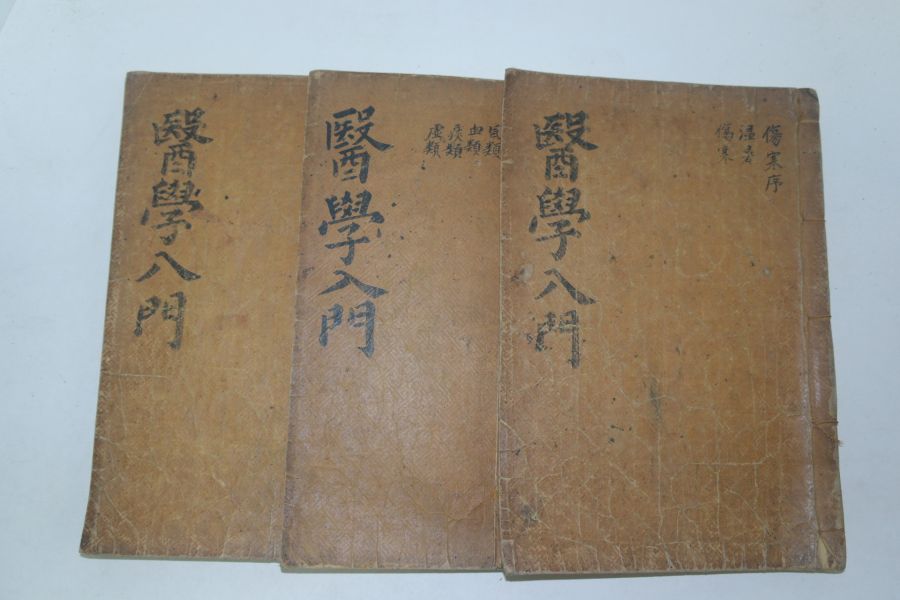 傷寒序
溫暑
傷寒
醫學入門
類
血類
痰類
虛類
醫學入門
醫學入門